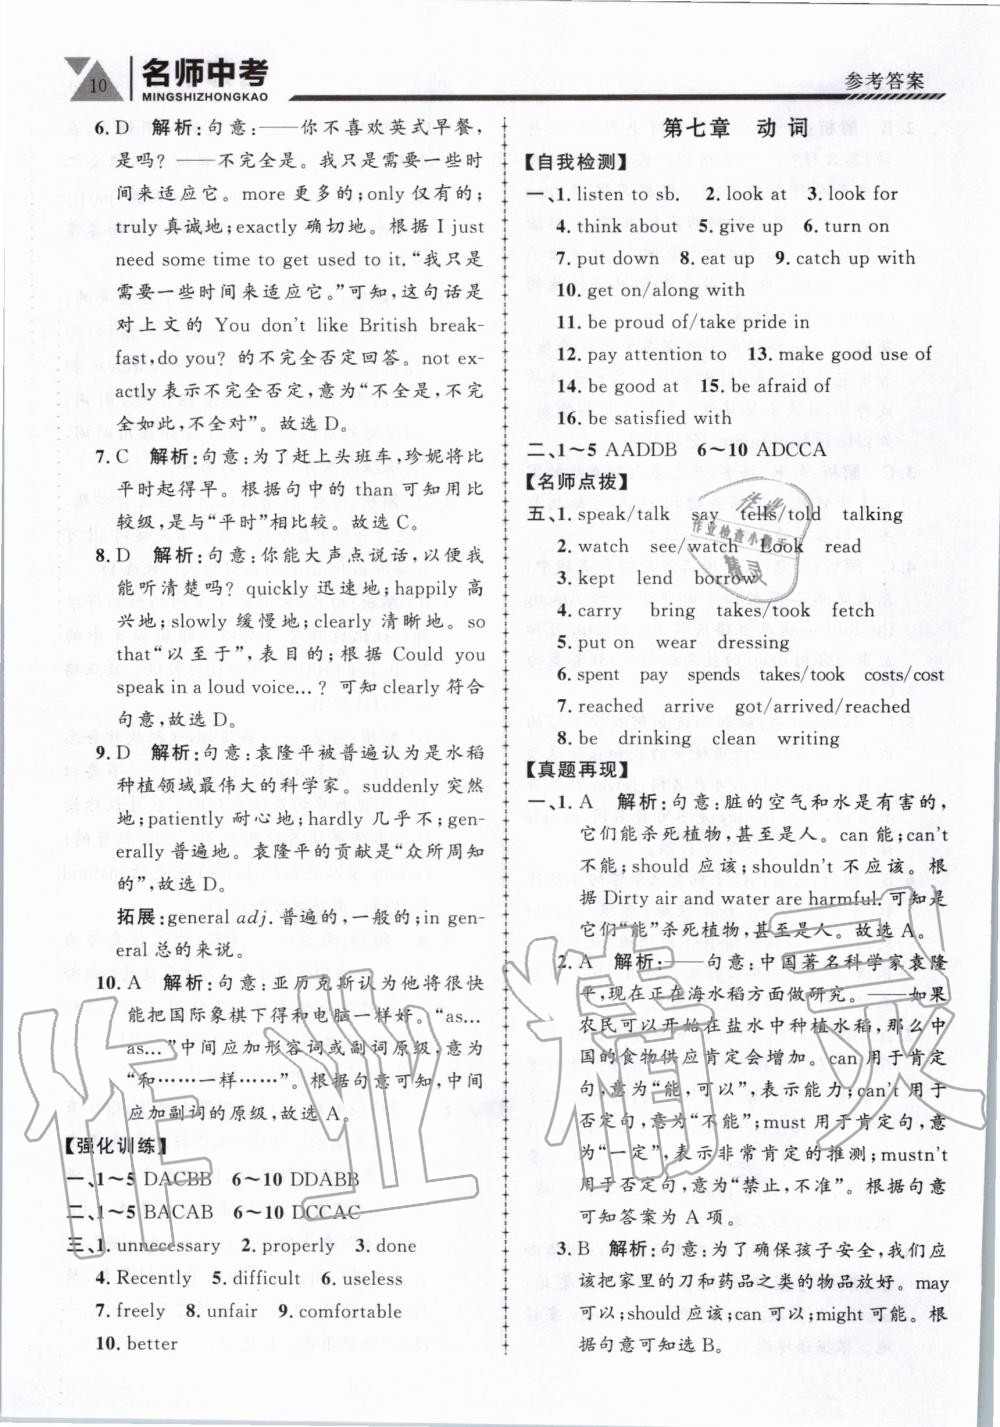 10
名师中考
MINGSHIZHONGKAO
参考答案
6. D 解析:句意:——你不喜欢英式早餐,
是吗? ——不完全是。我只是需要一些时
间来适应它。more 更多的;only 仅有的;
truly 真诚地;exactly 确切地。根据 I just
need some time to get used to it.“我只是
需要一些时间来适应它。”可知,这句话是
对上文的 You don't like British break-
fast,do you? 的不完全否定回答。not ex-
actly 表示不完全否定,意为“不全是,不完
全如此,不全对”。故选 D。
7. C 解析:句意:为了赶上头班车,珍妮将比
平时起得早。根据句中的 than 可知用比
较级,是与“平时”相比较。故选 C。
8. D 解析:句意:你能大声点说话,以便我
能听清楚吗? quickly 迅速地;happily 高
兴地;slowly 缓慢地;clearly 清晰地。so
that“以至于”,表目的;根据 Could you
speak in a loud voice...? 可知 clearly 符合
句意,故选 D。
9. D 解析:句意:袁隆平被普遍认为是水稻
种植领域最伟大的科学家。suddenly 突然
地;patiently 耐心地;hardly 几乎不;gen-
erally 普遍地。袁隆平的贡献是“众所周知
的”,故选 D。
拓展:general adj. 普遍的,一般的;in gen-
eral 总的来说。
10. A 解析:句意:亚历克斯认为他将很快
能把国际象棋下得和电脑一样好。“as...
as...”中间应加形容词或副词原级,意为
“和……一样……”。根据句意可知,中间
应加副词的原级,故选 A。
【强化训练】
一、1~5 DACBB 6~10 DDABB
二、1~5 BACAB 6~10 DCCAC
三、1. unnecessary 2. properly 3. done
4. Recently 5. difficult 6. useless
7. freely 8. unfair 9. comfortable
10. better
第七章 动词
【自我检测】
一、1. listen to sb. 2. look at 3. look for
4. think about 5. give up 6. turn on
7. put down 8. eat up 9. catch up with
10. get on/along with
11. be proud of/take pride in
12. pay attention to 13. make good use of
14. be good at 15. be afraid of
16. be satisfied with
二、1~5 AADDB 6~10 ADCCA
【名师点拨】
五、1. speak/talk say tells/told talking
2. watch see/watch Look read
3. kept lend borrow
4. carry bring takes/took fetch
5. put on wear dressing
6. spent pay spends takes/took costs/cost
7. reached arrive got/arrived/reached
8. be drinking clean writing
【真题再现】
一、1. A 解析:句意:脏的空气和水是有害的,
它们能杀死植物,甚至是人。can 能;can't
不能;should 应该;shouldn't 不应该。根
据 Dirty air and water are harmful. 可知是
它们“能”杀死植物,甚至是人。故选 A。
2. A 解析:——句意:中国著名科学家袁隆
平,现在正在海水稻方面做研究。——如果
农民可以开始在盐水中种植水稻,那么中
国的食物供应肯定会增加。can 用于肯定
句,意为“能,可以”,表示能力;can't 用于
否定句,意为“不能”;must 用于肯定句,意
为“一定”,表示非常肯定的推测;mustn't
用于否定句,意为“禁止,不准”。根据句意
可知答案为 A 项。
3. B 解析:句意:为了确保孩子安全,我们应
该把家里的刀和药品之类的物品放好。may
可以;should 应该;can 可以;might 可能。根
据句意可知选 B。
作业检查小帮手
作业
精灵
作业精灵